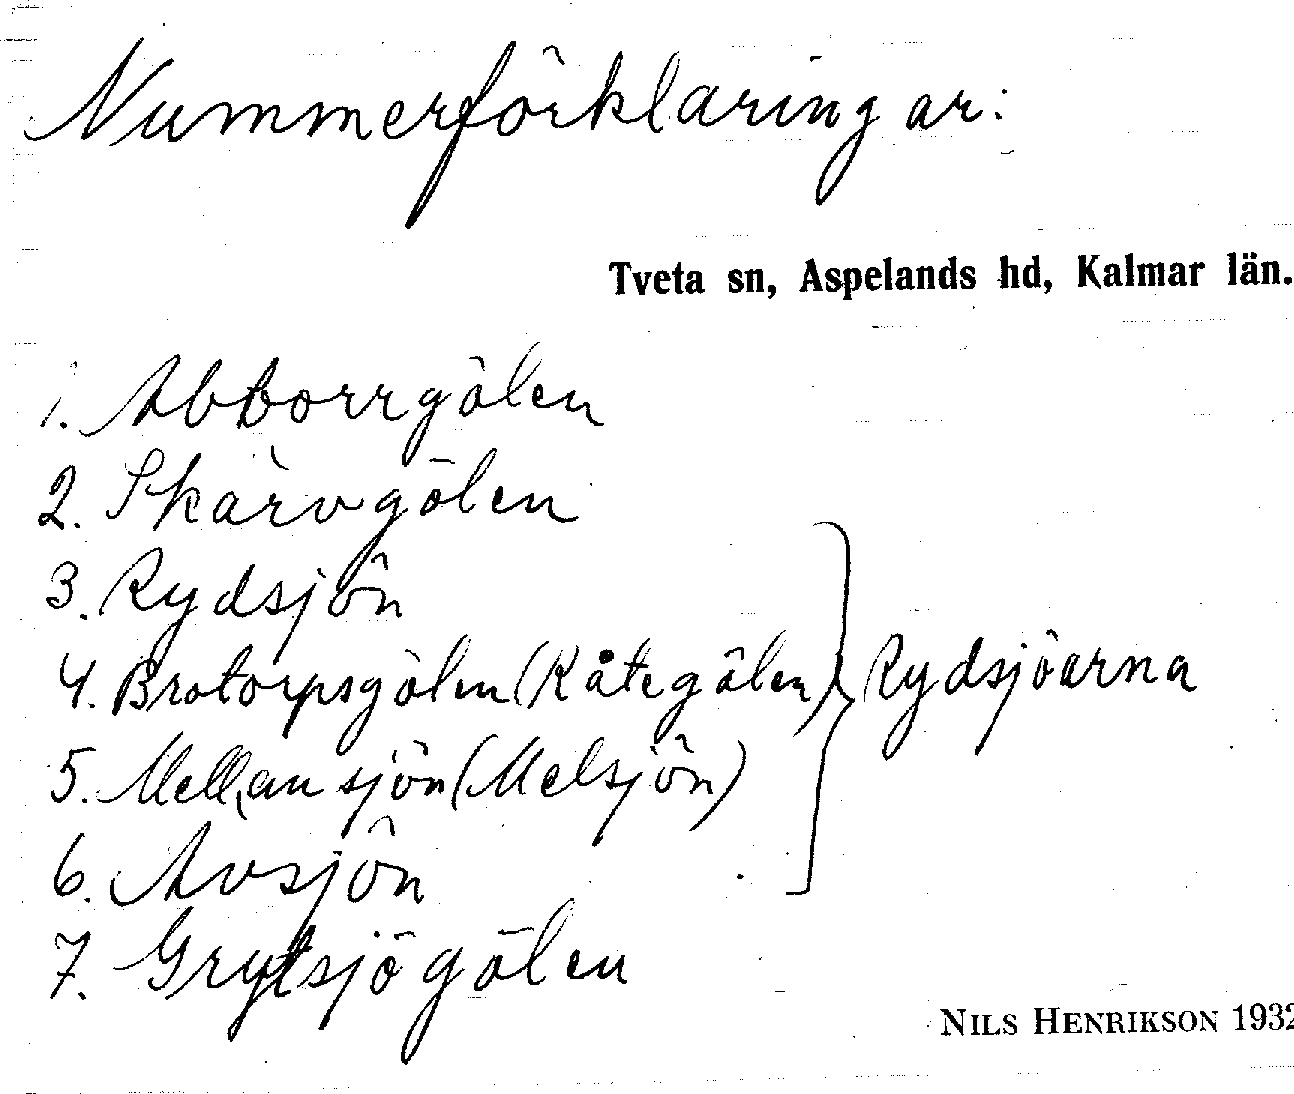 Nummerförklaringar:
Tveta sn, Aspelands hd, Kalmar län.
1. Abborrgölen
2. Skärvgölen
3. Rydsjön
4. Brotorpsgölen (Kåtegölen) Rydsjöarna
5. Mellansjön (Melsjön)
6. Avsjön
7. Grytsjögölen
NILS HENRIKSON 1932